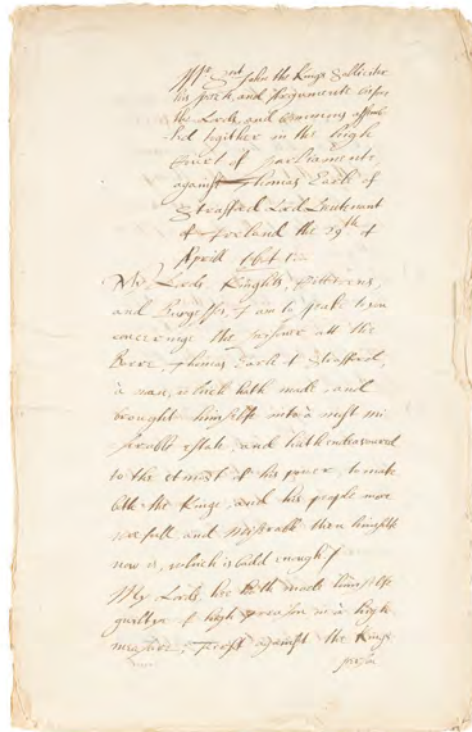 Mr Snt John the Kings Sollicitor
his speech, and Arguments before
the Lords, and Commons assem-
bled togither in the high
Court of parliaments,
against Thomas Earle of
Strafford Lord Lieutenant
of Ireland the 29th of
Aprill 1641
My Lords Knights, Cittizens,
and Burgesses, I am to speake to you
concerninge the prisoner att the
Barre, Thomas Earle of Strafford,
a man, which hath made, and
brought himselfe into a most mi
serable estate, and hath endeavoured
to the utmost of his power, to make
both the Kinge, and his people more
wofull, and miserable then himselfe
now is, which is badd enough
My Lords, hee hath made himselfe
guiltye of high Treason in a high
measure, First against the Kings
person